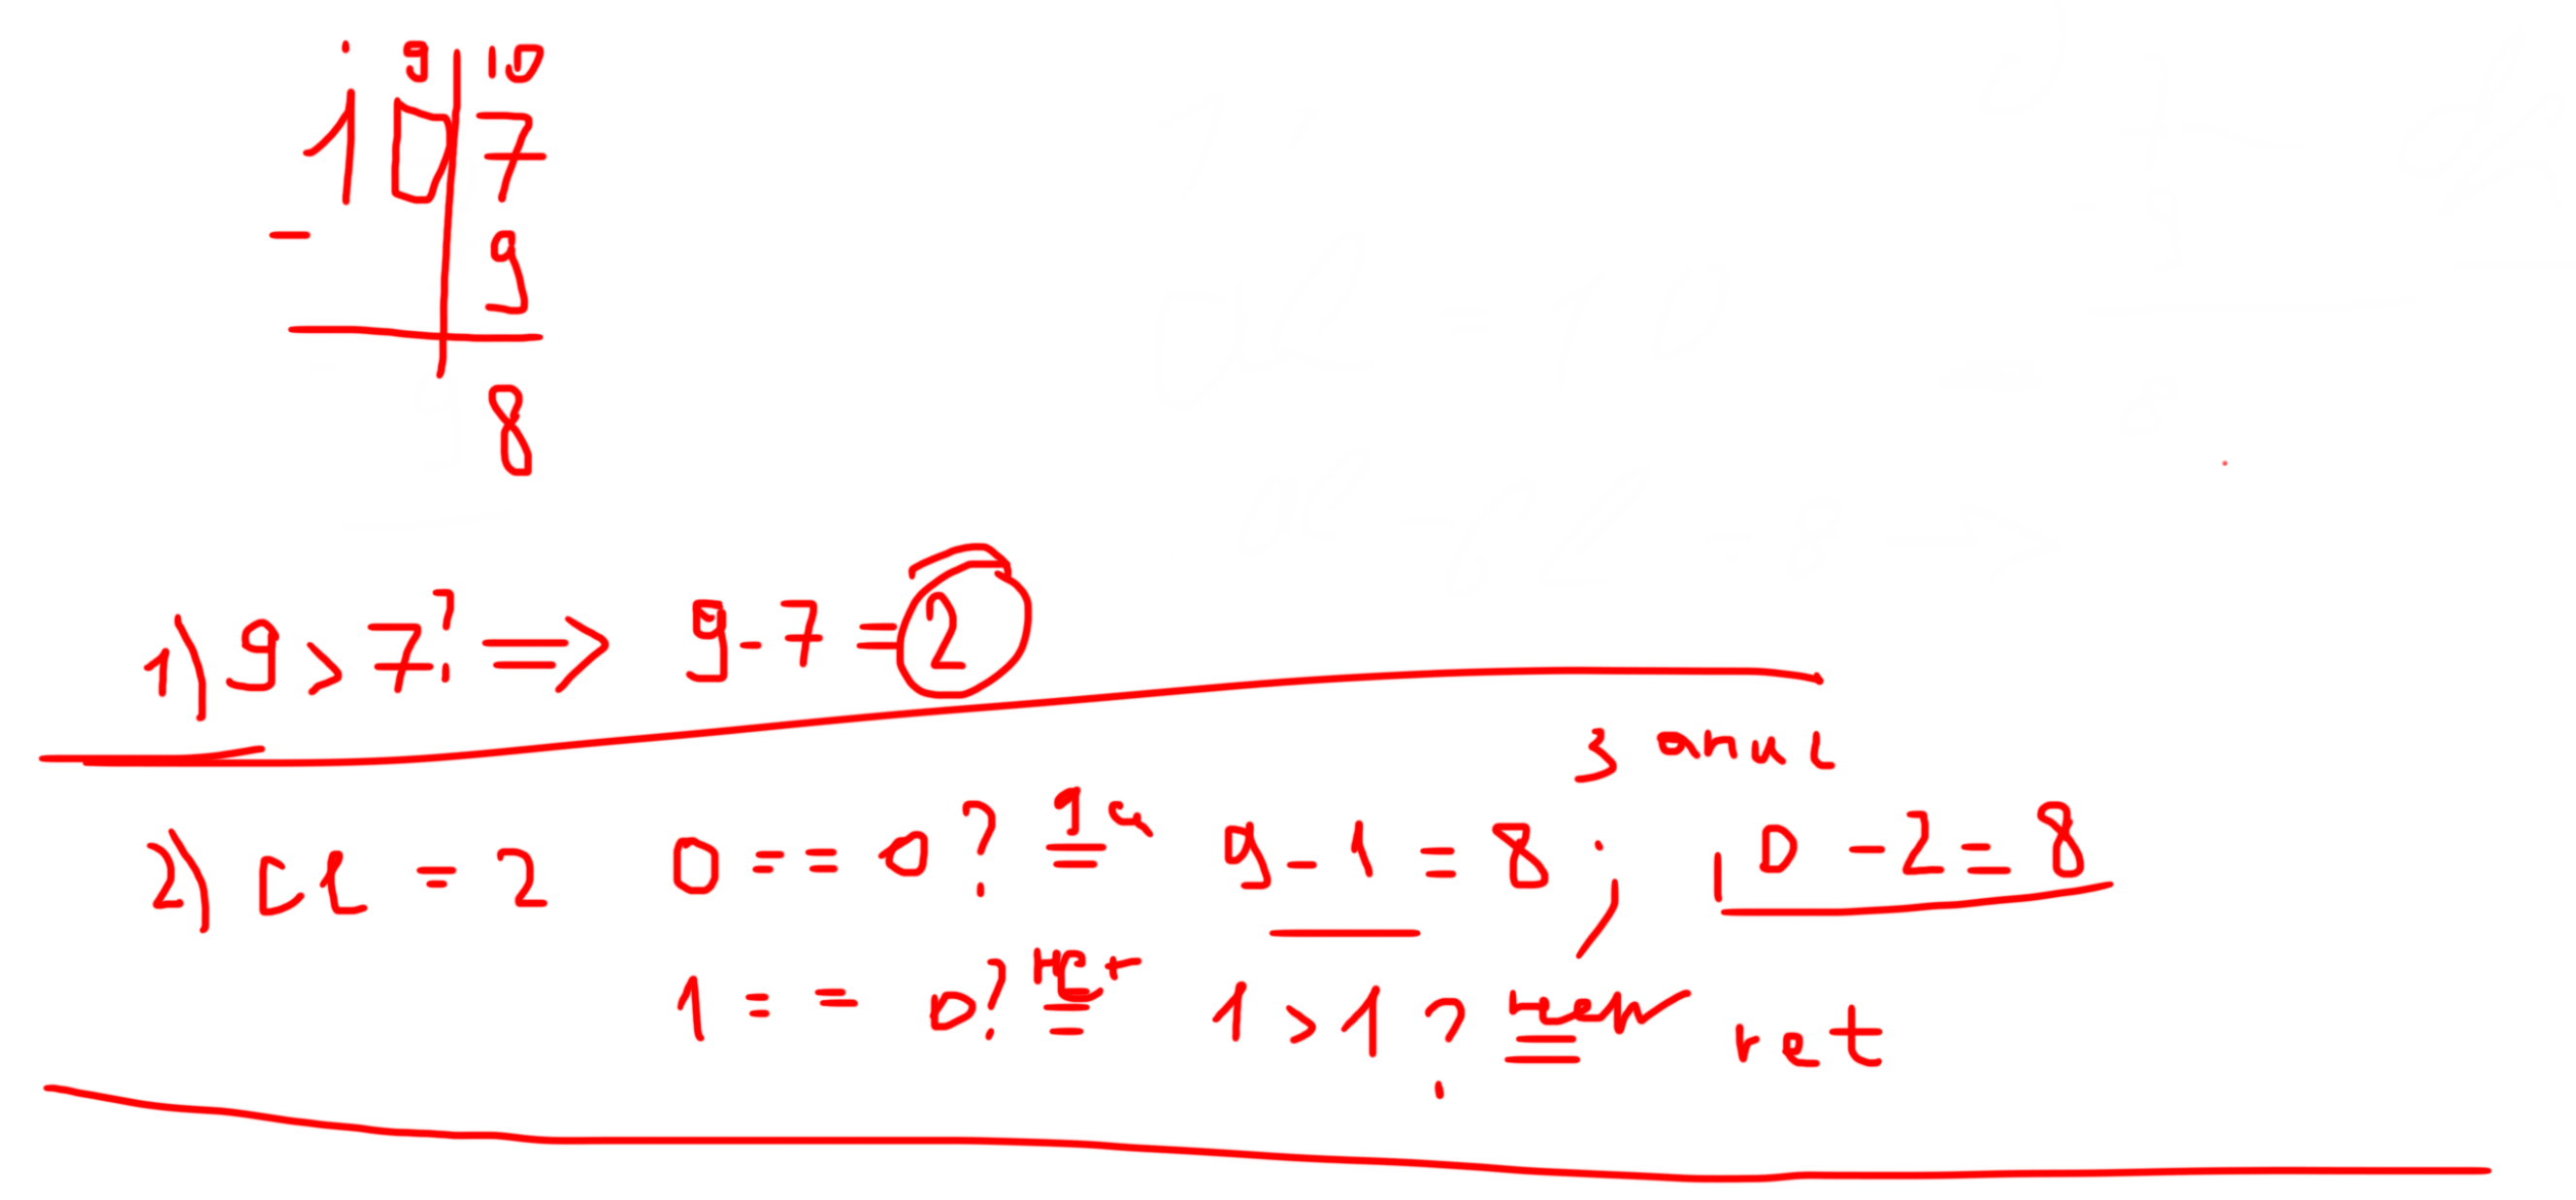 . 9 10
1 0 7
-
9
8
1) 9 > 7? => 9 - 7 = 2
3
2) cl = 2 0 == 0? = 9 - 1 = 8 ; 10 - 2 = 8
1 == 0? нет 1 > 1 ? нет ret